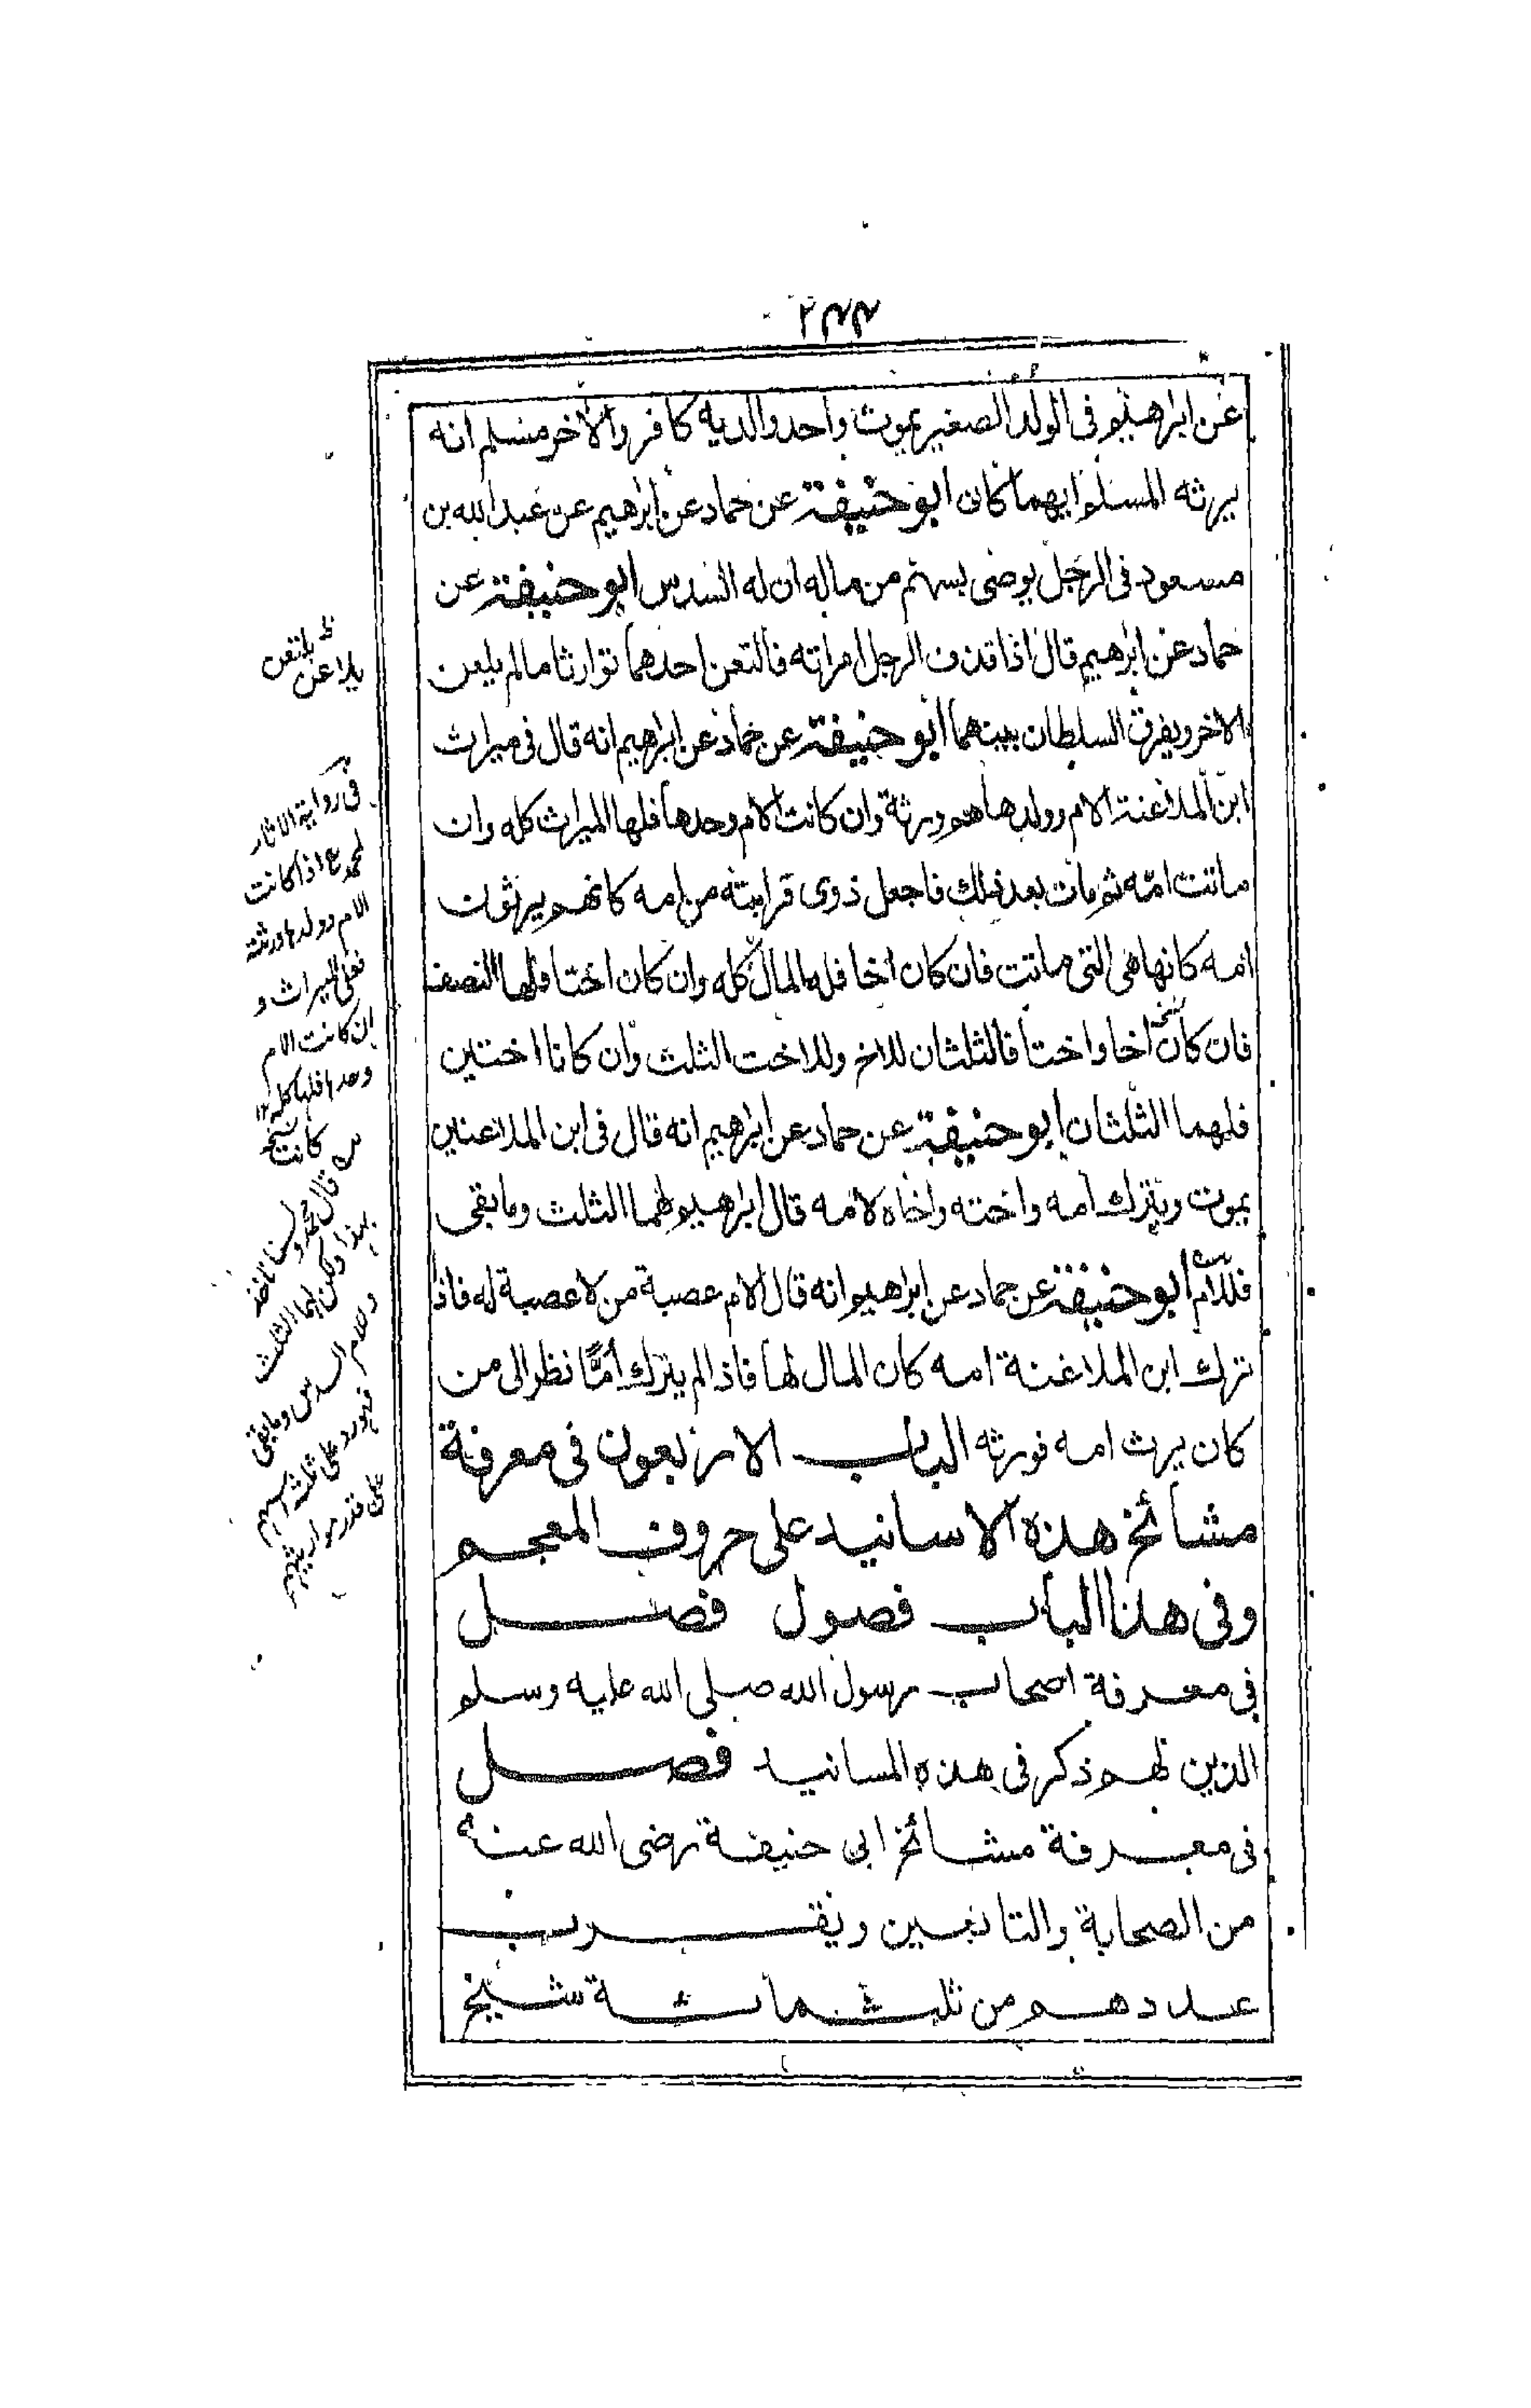 ٢٤٤
عن ابراهيم فى الولد الصغير يموث واحد والديه كافر والاخر مسلم انه
يرثه المسلم ايهما كان ابو حنيفة عن حماد عن ابراهيم عن عبد الله بن
مسعود فى الرجل يوصى بسهم من ماله ان له السدس ابو حنيفة عن
حماد عن ابراهيم قال اذا قذف الرجل امراته فالتعن احدهما توارثا مالم يلعن
الاخر ويفرق السلطان بينهما ابو حنيفة عن حماد عن ابراهيم انه قال فى ميراث
ابن الملاعنة الام وولدها هم ورثة وان كانت الام وحدها فلها الميراث كله وان
ماتت امه ثم مات بعد ذلك فاجعل ذوى قرابته من امه كانهم يرثون
امه كانها هى التى ماتت فان كان اخا فله المال كله وان كان اختا فلها النصف
فان كان اخا واختا فالثلثان للاخ وللاخت الثلث وان كانا اختين
فلهما الثلثان ابو حنيفة عن حماد عن ابراهيم انه قال فى ابن الملاعنين
يموت ويترك امه واخته واخاه لامه قال ابراهيم لهما الثلث وما بقى
فللام ابو حنيفة عن حماد عن ابراهيم انه قال الام عصبة من لا عصبة له فاذا
ترك ابن الملاعنة امه كان المال لها فاذا لم يترك أمًّا نظر الى من
كان يرث امه فورثه الباب الاربعون فى معرفة
مشائخ هذه الاسانيد على حروف المعجم
وفى هذا الباب فصول فصل
فى معرفة اصحاب رسول الله صلى الله عليه وسلم
الذين لهم ذكر فى هذه المسانيد فصل
فى معرفة مشائخ ابى حنيفة رضى الله عنه
من الصحابة والتابعين ويقرب
عددهم من ثلثمائة شيخ
يلتعن
يلاعن
فى رواية الاثار
لمحمد اذا كانت
الام وولدها ورثة
فعلى الميراث و
ان كانت الام
وحدها فلها كله ١٢
كانت
قال محمد ولسنا ناخذ
بهذا ولكن لهما الثلث
وللام السدس وما بقى
فهو رد على ثلثة اسهم
على قدر مواريثهم